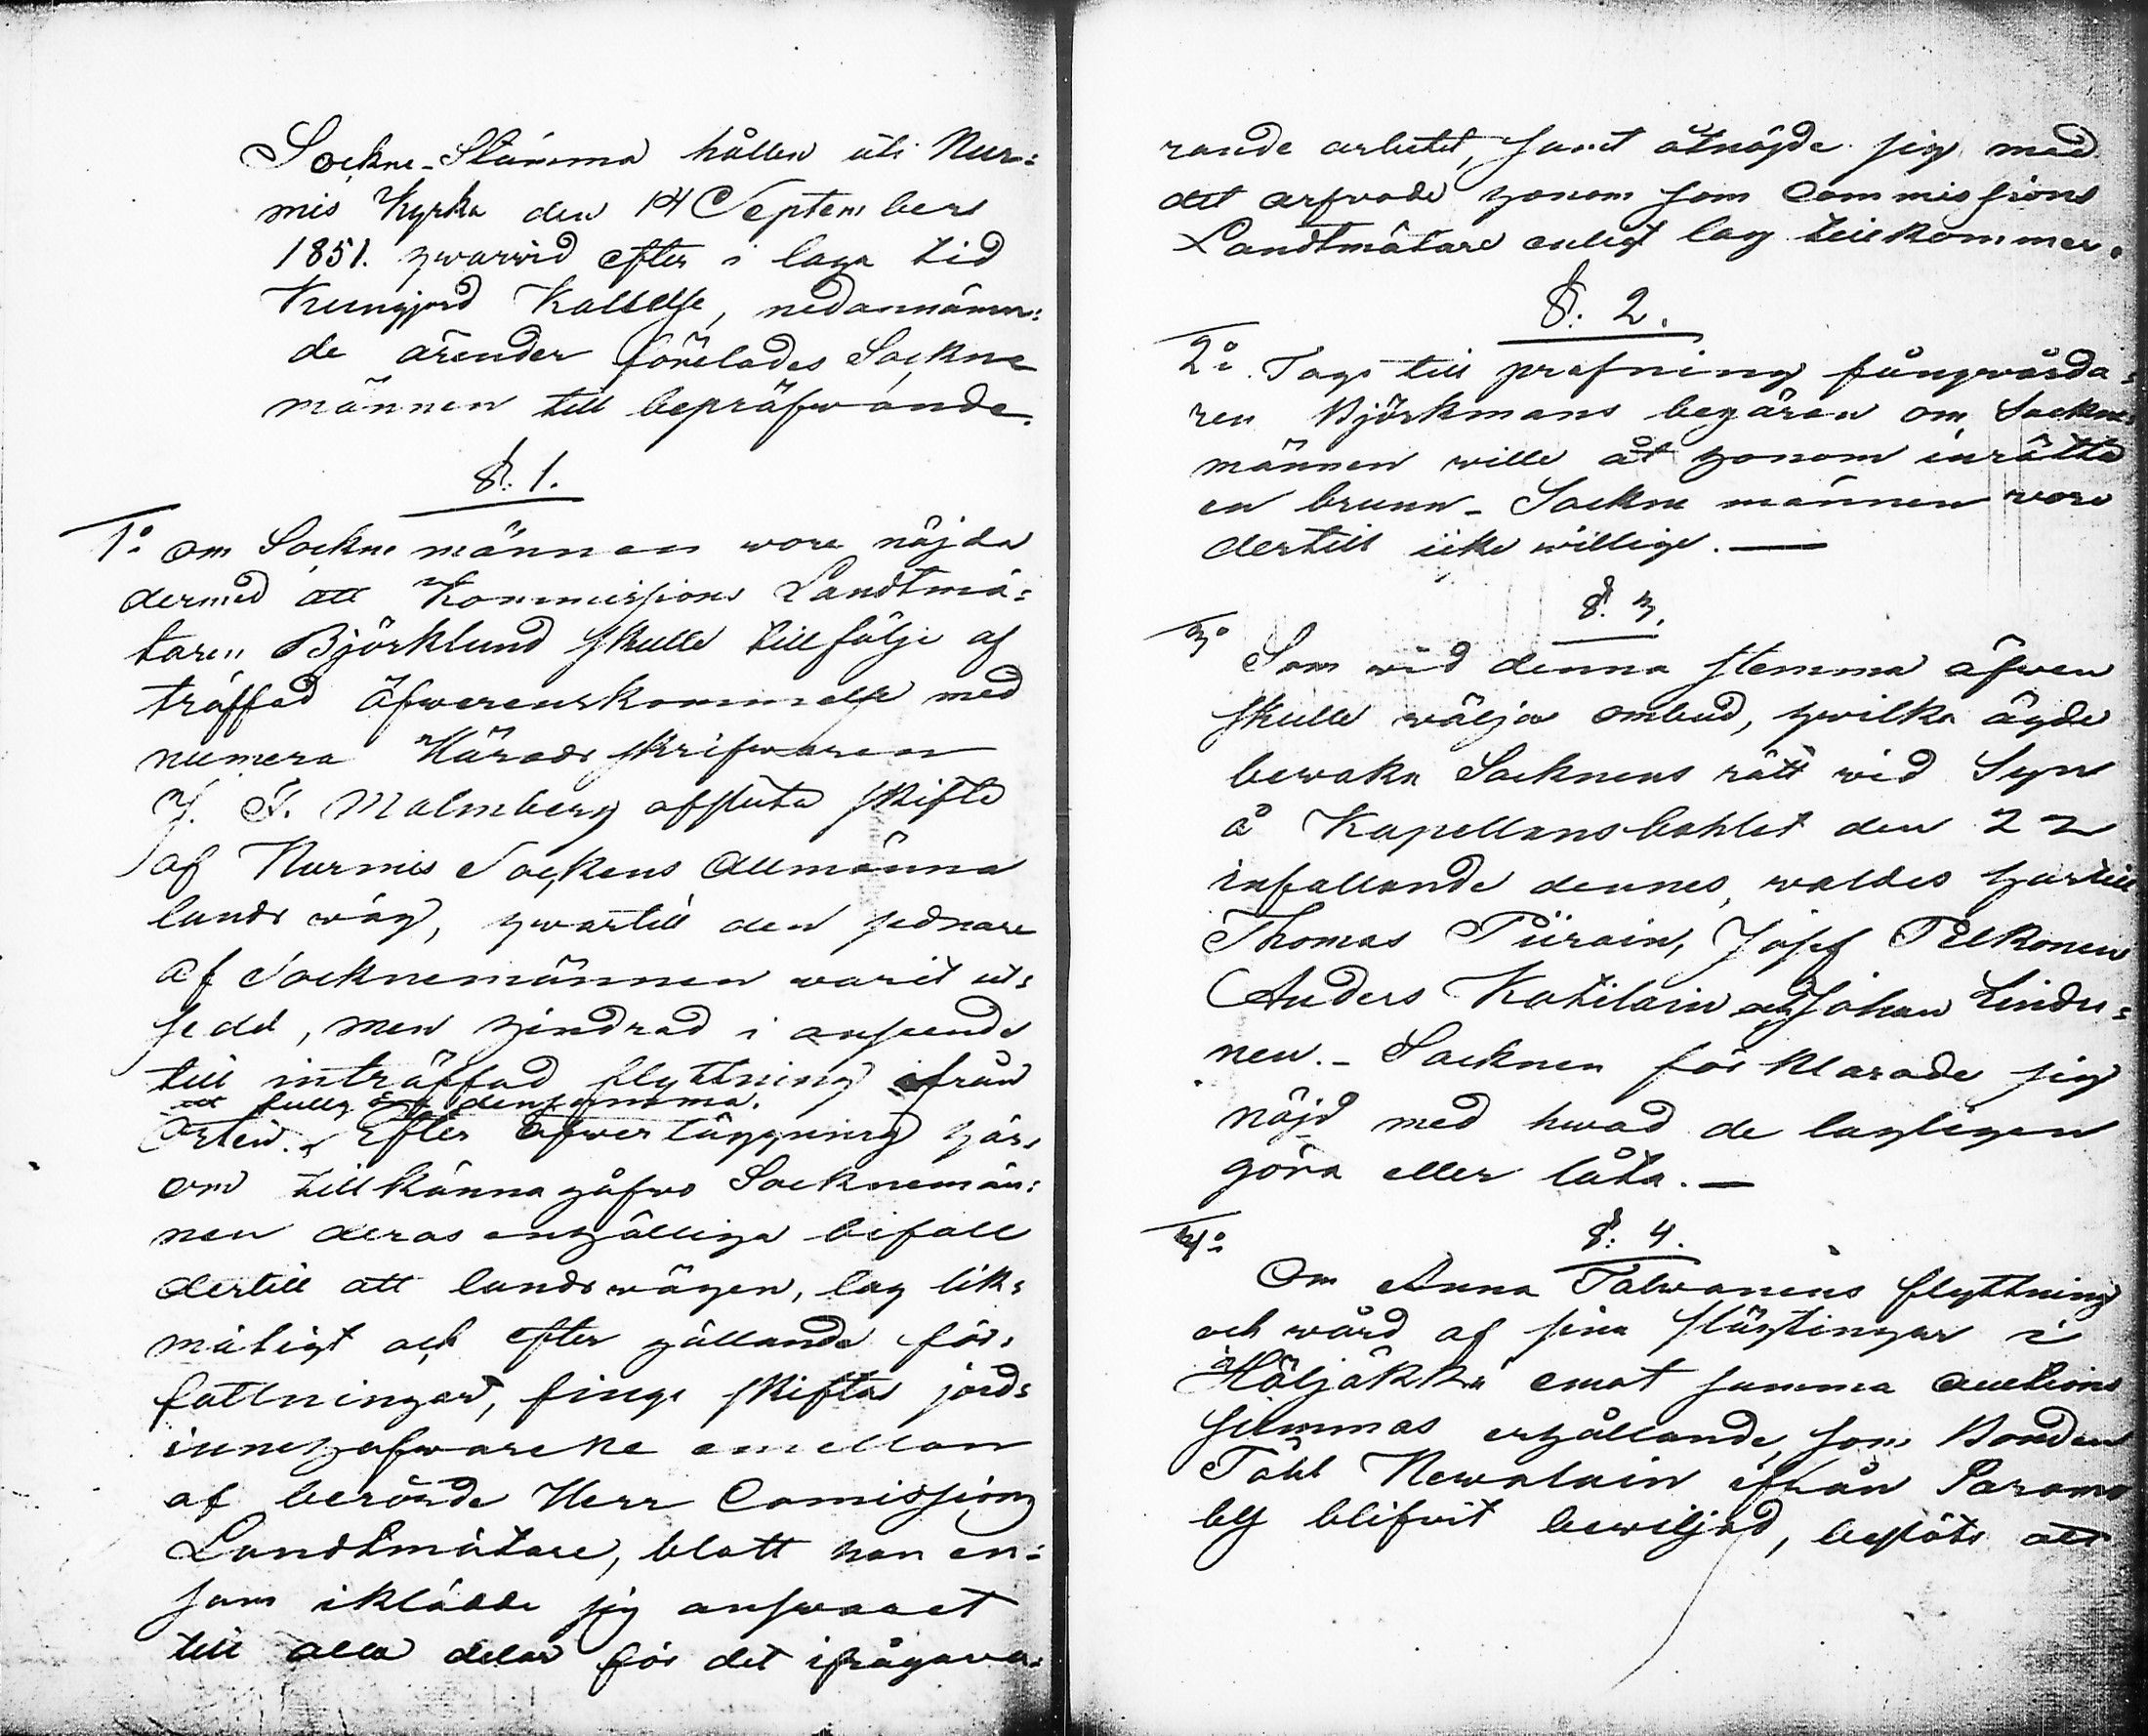 Sockne-Stämma hållen uti Nur:
mis Kyrka den 14 September
1851. hwarwid efter i laga tid
kungjord Kallelse, nedannämn:
de ärender förelades Sockne
männen till beпröfwande.
§. 1.
1:o om Sockne männen wore nöjda
dermed att Kommissions Landtmä:
taren Björklund skulle till följe af
träffad öfwerenskommelse med
numera Härads skrifwaren
J. F. Malmberg afsluta skifte
af Nurmis Sockens Allmänna
lands wäg, hwartill den sednare
af Socknemännen warit ut:
sedd, men hindrad i anseende
till inträffad flyttning ifrån
att fullgöra densamma.
Orten. Efter öfwerläggning här:
om tillkännagåfwo Socknemän:
nen deras enhälliga bifall
dertill att landswägen, lag lik:
mätigt och efter gällande för:
fattningar, finge skiftas jord:
innehafwarene emellan
af berörde Herr Comissions
Landtmätare, blott han en:
sam iklädde sig answaret
till alla delar för det ifrågawa:
rande arbetet, samt åtnöjde sig med
det arfvode honom som Commissions
Landtmätare enligt lag tillkommer.
§. 2.
2:o Togs till prøfning fångwårda:
ren Björkmans begäran om Sockne:
männen wille åt honom inrätta
en brunn - Sockne männen woro
dertill icke willige. —
§. 3.
3:o
Som wid denna stemma äfwen
skulle wälja ombud, hwilka ägde
bewaka Socknens rätt wid Syn
å Kapellansbohlet den 22
infallande dennes, waldes härtill
Thomas Piirain, Josef Pelkonen
Anders Katilain och Johan Lindu:
nen. - Socknen förklarade sig
nöjd med hwad de lagligen
göra eller låta. —
4:o
§. 4.
Om Anna Talwanens flyttning
och wård af sina slägtingar i
Höljäkkä emot samma auctions
summas erhållande, som Bonden
Påhl Newalain ifrån Saramo
by blifvit bewiljad, beslöts att